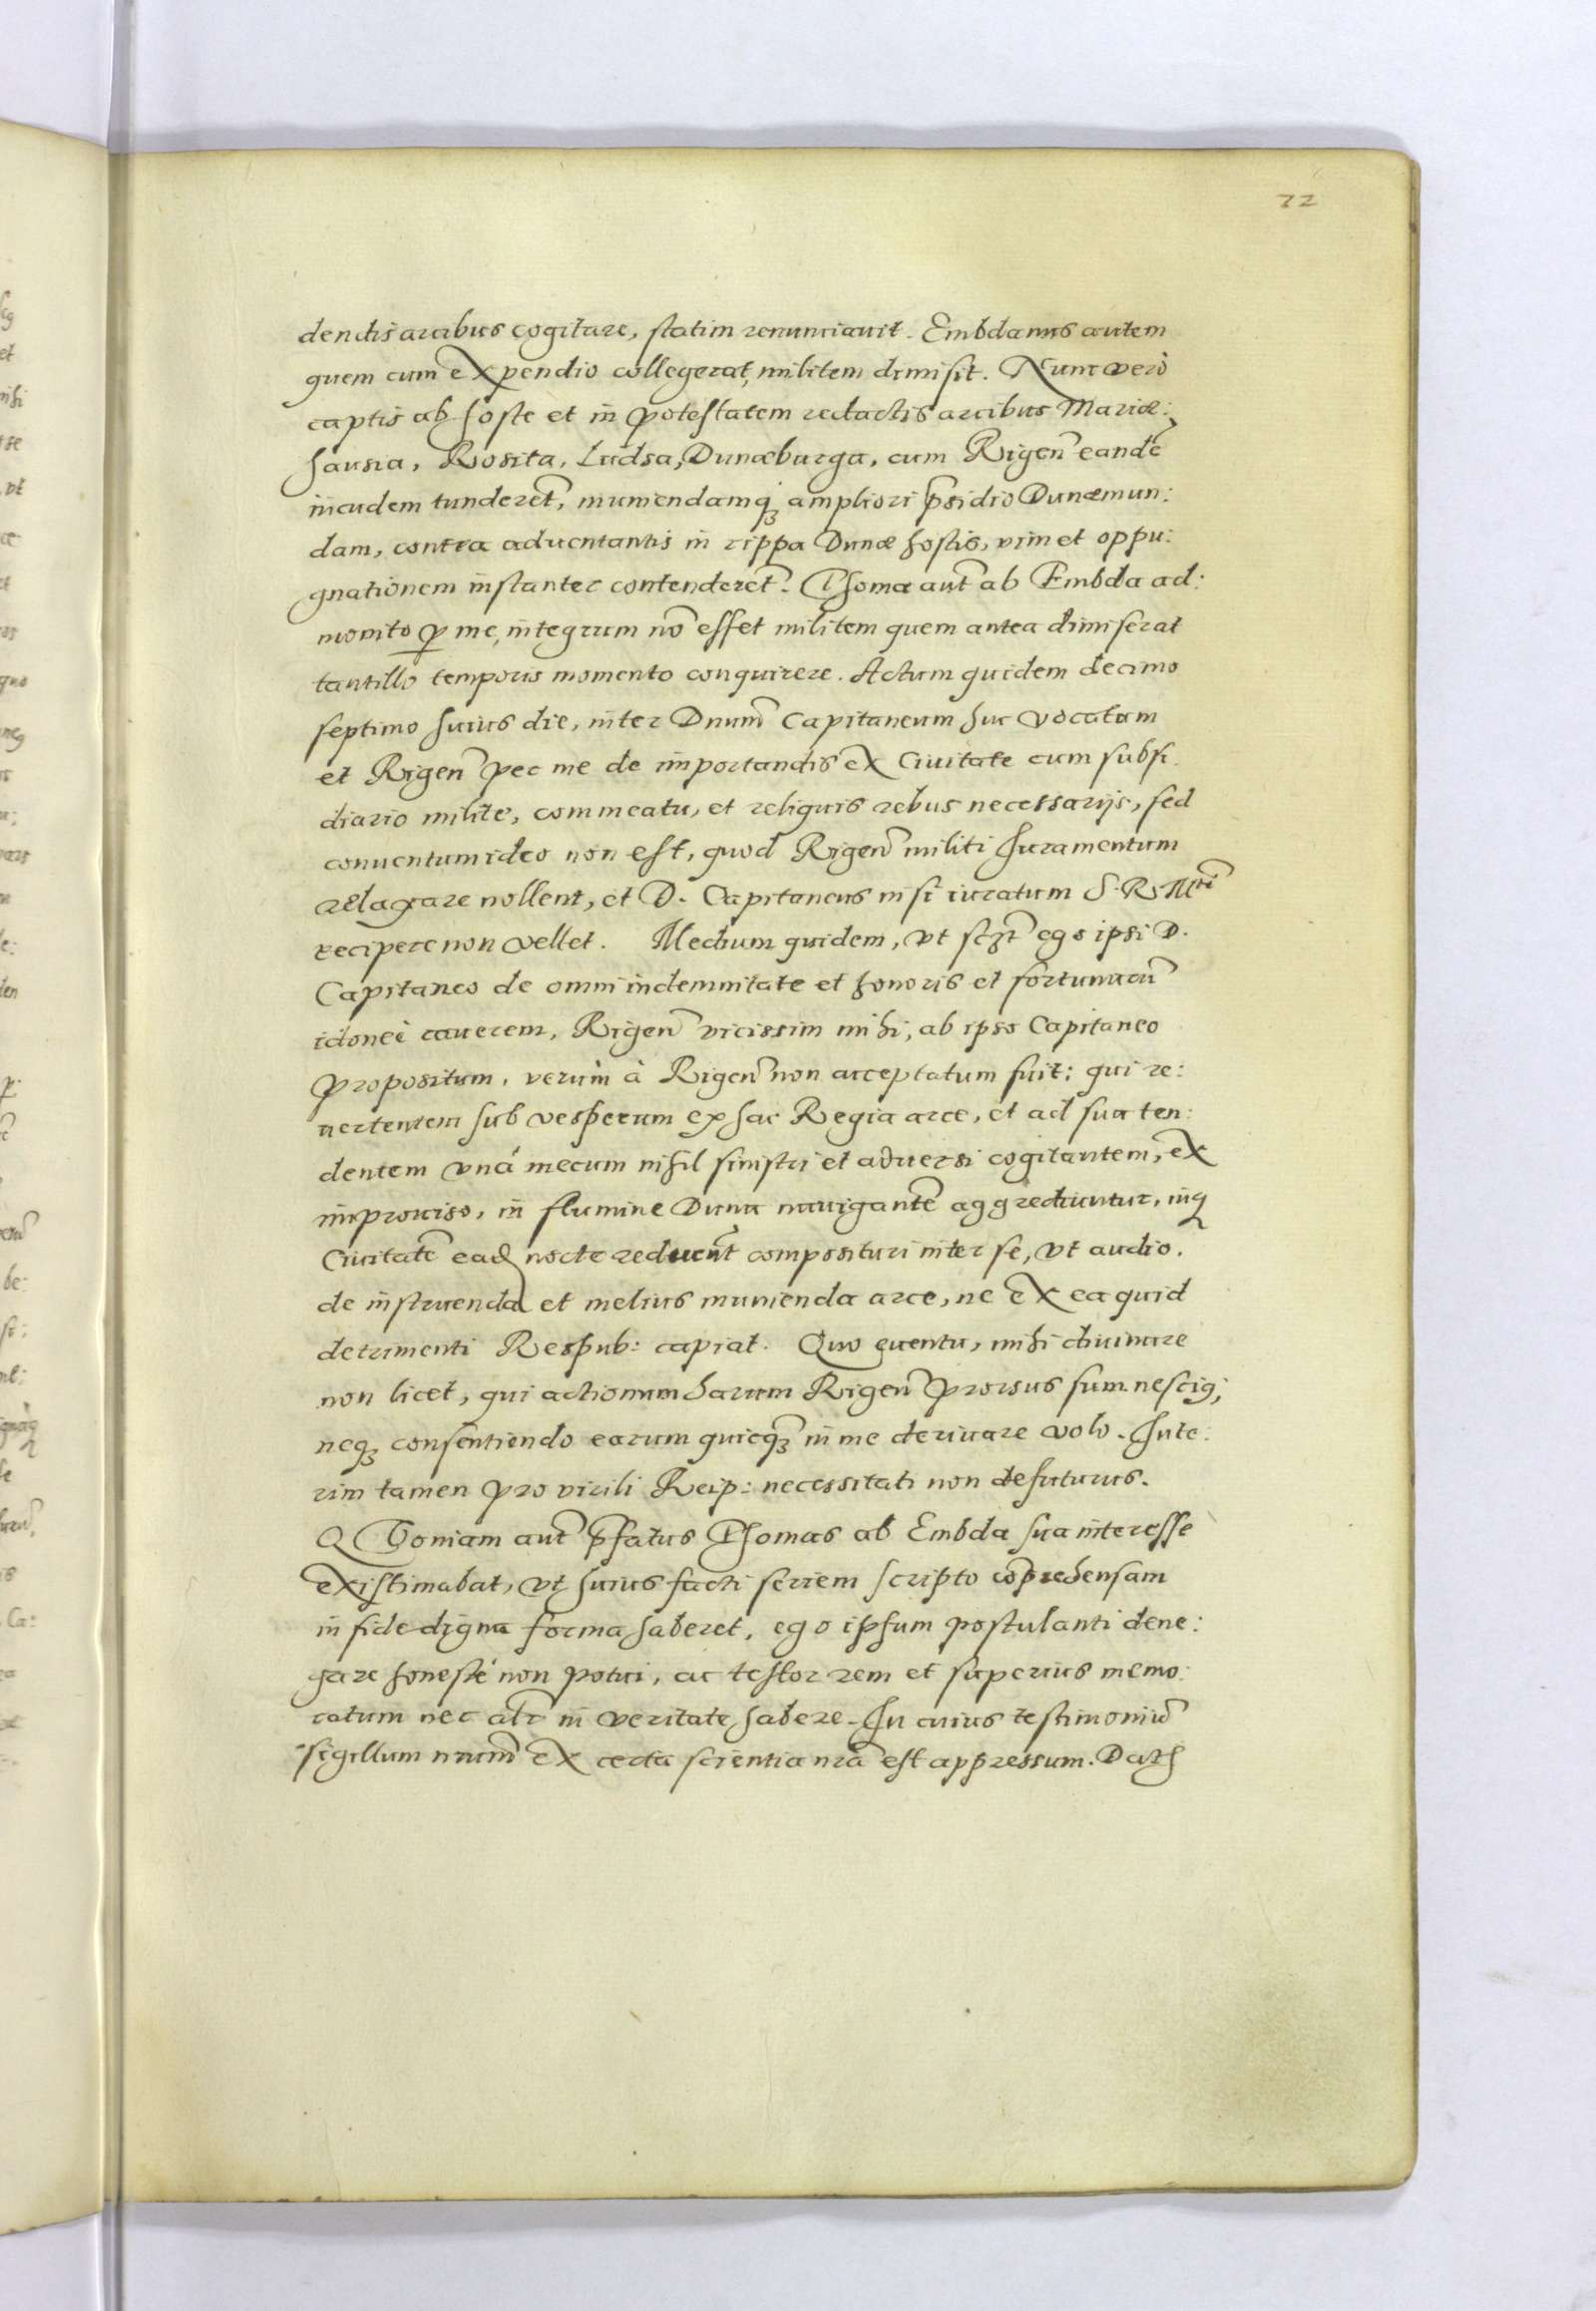 72
dendis arcibus cogitare, statim renunciauit. Embdanus autem
quem cum expendio collegerat, militem dimisit. Nunc verò
captis ab hoste et in potestatem redactis arcibus Mariæ:
hausia, Rosita, Ludsa, Dunæburga, cum Rigeñ eandē
incudem tunderet̃, muniendamq́ꝫ ampliori p̃sidio Dunæmun:
dam, contra aduentantis in rippa Dunæ hostis, vim et oppu:
gnationem instanter contenderet̃. Thomæ aut̃ ab Embda ad:
monito ꝑ me, integrum nō esset militem quem antea dimiserat
tantillo temporis momento conquirere. Actum quidem decimo
septimo huius die, inter Dnum̃ Capitaneum huc vocatum
et Rigeñ per me de importandis ex Ciuitate cum subsi:
diario milite, commeatu, et reliquis rebus necessarijs, sed
conuentum ideo non est, quod Rigeñ militi Juramentum
relaxare nollent, et D. Capitaneus nisi iuratum S. R. Mti
recipere non vellet. Medium quidem, vt sczt̃ ego ipsi D.
Capitaneo de omni indemnitate et honoris et fortunarũ
idonei cauerem, Rigeñ vicissim mihi, ab ipso Capitaneo
propositum, verùm à Rigeñ non acceptatum fuit: qui re:
uertentem sub vesperum ex hac Regia arce, et ad sua ten:
dentem vná mecum nihil sinistri et aduersi cogitantem, ex
improuiso, in flumine Duna nauigantē aggrediuntur, inq́
Ciuitatē ead nocte reducūt composituri inter se, vt audio.
de instruenda et melius munienda arce, ne ex ea quid
detrimenti Respub: capiat. Quo euentu, mihi diuinare
non licet, qui actionum harum Rigeñ prorsus sum nesciꝰ;
neqꝫ consentiendo earum quicq̃ꝫ in me deriuare volo. Inte:
rim tamen pro virili Reip: necessitati non defuturus.
QVoniam aut̃ p̃fatus Thomas ab Embda sua interesse
existimabat, vt huius facti seriem scripto cõprehensam
in fide digna forma haberet, ego ipsum postulanti dene:
gare honesté non potui, ac testor rem et superius memo:
ratum nec alr̃ in veritate habere. In cuius testimoniũ
sigillum nrum̃ ex certa scientia nrã est appressum. Datꝭ